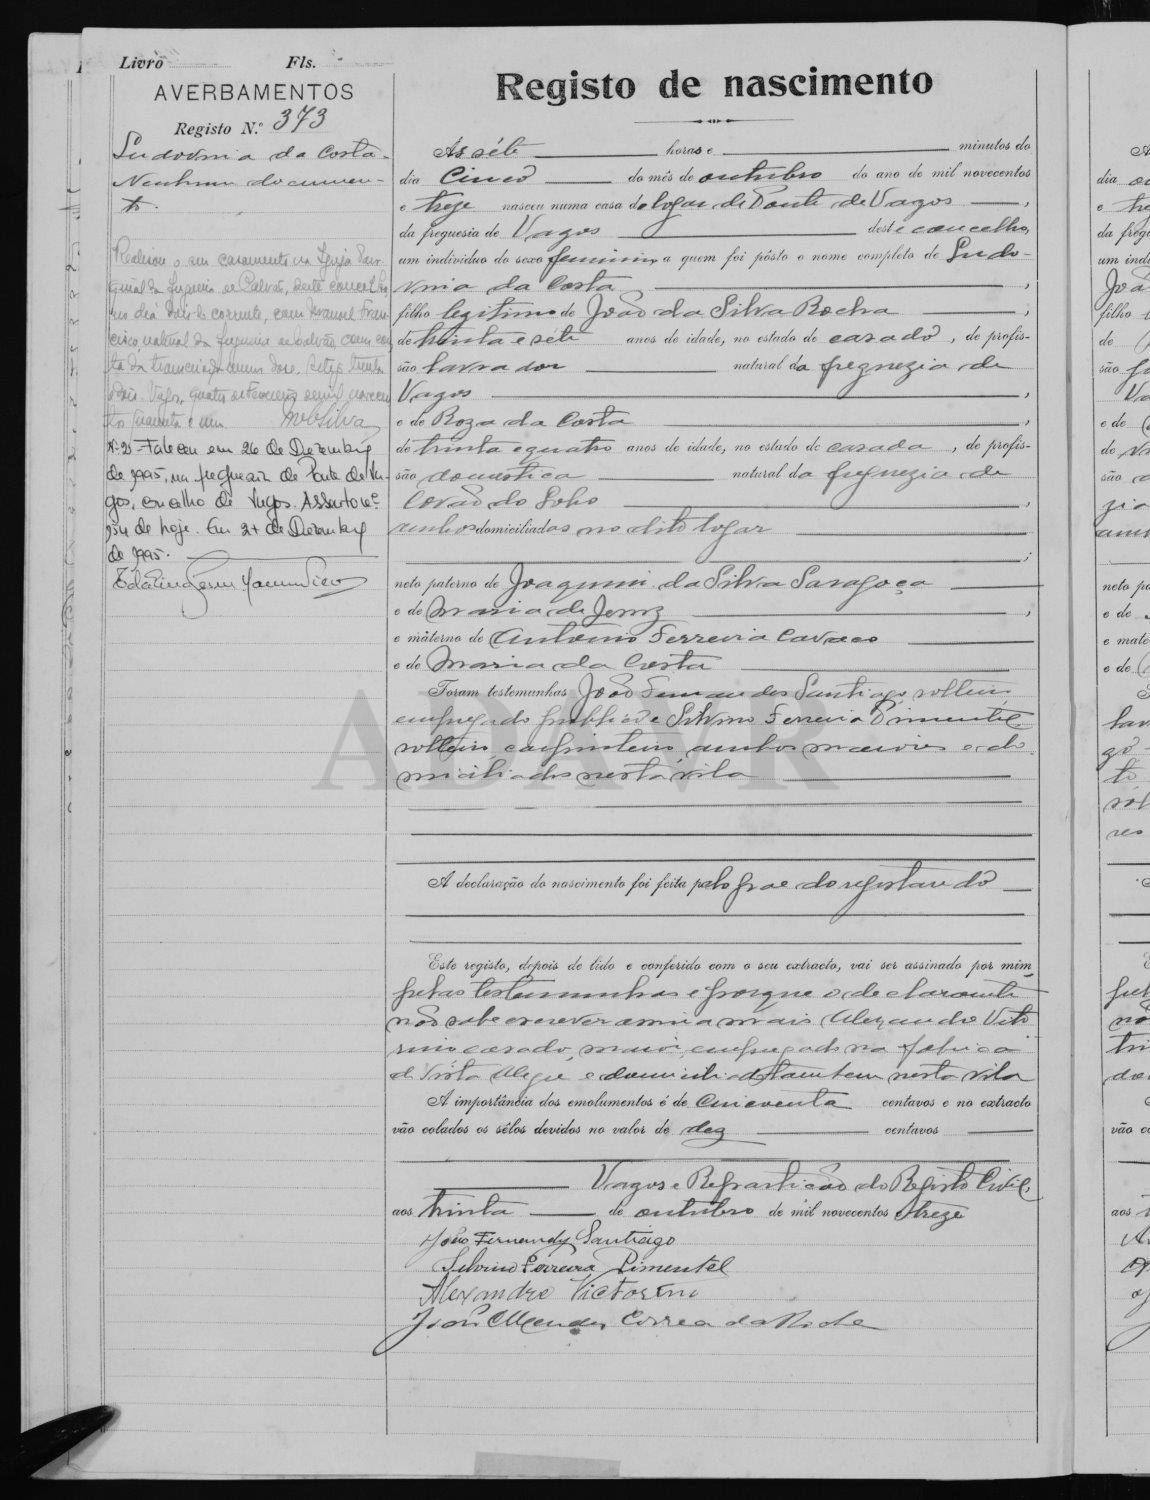 Livro Fls.
AVERBAMENTOS
Registo N.º 373
Ludovina da Costa.
Nenhum documen-
to.
Realisou o seu casamento na Igreja Paro-
quial da freguesia de Calvão, deste concelho
no dia dois do corrente, com Manuel Fran-
cisco natural da freguesia de Calvão, como cons-
ta da transcrição numero doze.
dois. Vagos, quatro de Fevereiro de mil novecen-
tos quarenta e um. Silva
N.º 2 - Faleceu em 26 de Dezembro
de 1995, na freguesia de Ponte de Va-
gos, concelho de Vagos. Assento n.º
de hoje. Em 27 de Dezembro
de 1995.
Registo de nascimento
Ás sete horas e minutos do
dia cinco do mês de outubro do ano de mil novecentos
e treze nasceu numa casa do logar de Ponte de Vagos,
da freguesia de Vagos deste concelho,
um indivíduo do sexo feminino a quem foi pôsto o nome completo de Ludo-
vina da Costa,
filho legitimo de João da Silva Rocha,
de trinta e sete anos de idade, no estado de casado, de profis-
são lavrador natural da freguezia de
Vagos,
e de Roza da Costa
de trinta e quatro anos de idade, no estado de casada, de profis-
são domestica natural da freguezia de
Covão do Lobo,
ambos domiciliados no dito logar
;
neto paterno de Joaquim da Silva Saragoça
e de Maria de Jesuz,
e materno de Antonio Ferreira Cavaco
e de Maria da Costa
Foram testemunhas João Fernandes Santiago, solteiro
empregado publico e Silvino Ferreira Pimentel
solteiro carpinteiro ambos maiores e do-
miciliados nesta vila
ADAVR
A declaração do nascimento foi feita pelo pae do registando
Este registo, depois de lido e conferido com o seu extracto, vai ser assinado por mim,
pelas testemunhas e porque o declarante
não sabe escrever assina mais Alexandre Vito-
rino casado, maior, empregado na fabrica
da Vista Alegre e domiciliado tambem nesta vila
A importância dos emolumentos é de cincoenta centavos e no extracto
vão colados os sêlos devidos no valor de dez centavos
Vagos e Repartição do Registo Civil,
aos trinta de outubro de mil novecentos e treze
João Fernandes Santiago
Silvino Ferreira Pimentel
Alexandre Victorino
João Mendes Correa da Rocha